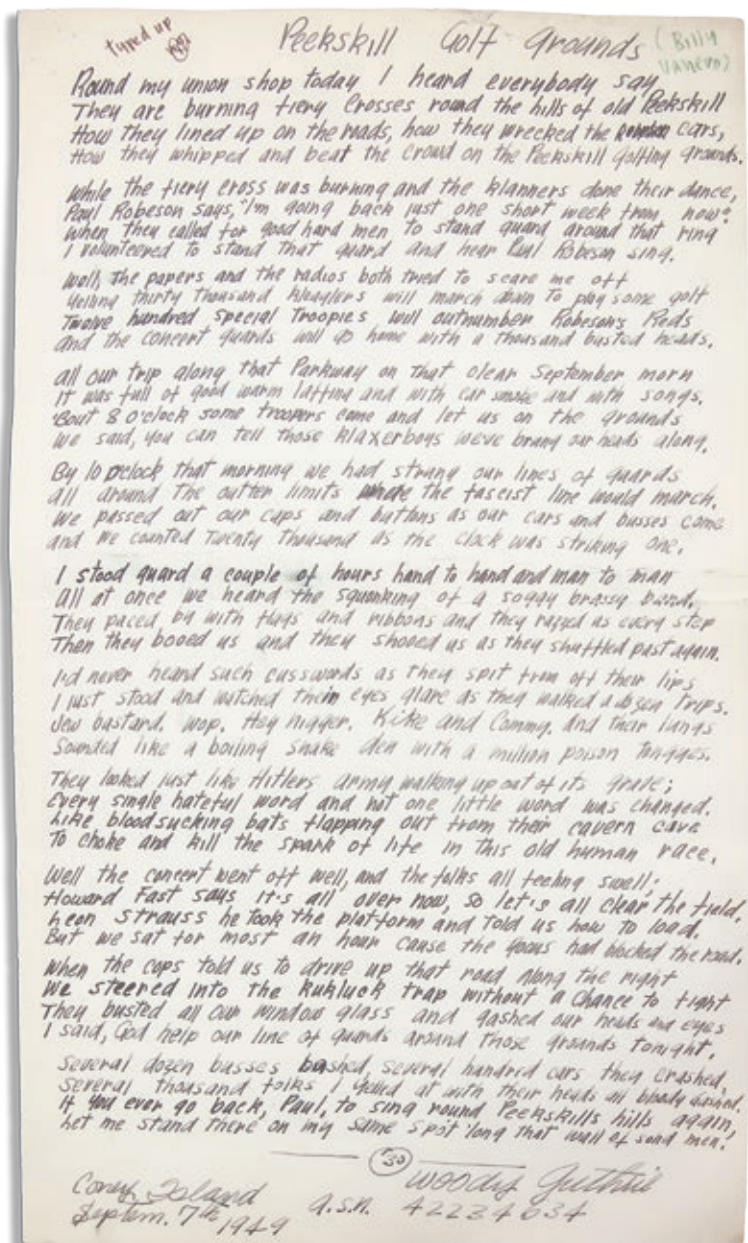 tuned up
Peekskill Golf Grounds
(Billy
Round my union shop today I heard everybody say
They are burning fiery Crosses round the hills of old Peekskill
How they lined up on the roads, how they wrecked the cars,
How they whipped and beat the crowd on the Peekskill golfing grounds.
While the fiery cross was burning and the klanners done their dance,
Paul Robeson says, "I'm going back just one short week from now"
When they called for good hard men to stand guard around that ring
I volunteered to stand that guard and hear Paul Robeson sing.
Well, the papers and the radios both tried to scare me off
Yelling thirty thousand will march down to play some golf
Twelve hundred special Troopies will outnumber Robeson's Reds
and the concert guards will go home with a thousand busted heads.
all our trip along that Parkway on that clear September morn
It was full of good warm laffing and with car smoke and with songs.
'Bout 8 o'clock some troopers come and let us on the grounds
We said, you can tell those klaxerboys weve brung our heads along.
By 10 oclock that morning we had strung our lines of guards
all around the outter limits where the fascist line would march.
We passed out our caps and buttons as our cars and busses come
and we counted Twenty Thousand as the clock was striking one.
I stood guard a couple of hours hand to hand and man to man
all at once we heard the squonking of a soggy brassy band.
They paced by with flags and ribbons and they razzed as every step
Then they booed us and they shooed us as they shuffled past again.
I'd never heard such cusswords as they spit from off their lips
I just stood and watched their eyes glare as they walked a dozen trips.
Jew bastard. Wop. Hey nigger. Kike and Commy. and their lungs
Sounded like a boiling snake den with a million poison tungues.
They looked just like Hitlers army walking up out of its grave;
Every single hateful word and not one little word was changed.
Like bloodsucking bats flapping out from their cavern cave
To choke and kill the spark of life in this old human race.
Well the concert went off well, and the folks all feeling swell;
Howard Fast says it's all over now, so let's all clear the field,
Leon Strauss he took the platform and told us how to load.
But we sat for most an hour cause the had blocked the road.
When the cops told us to drive up that road along the right
We steered into the kukluck trap without a chance to fight
They busted all our window glass and gashed our heads and eyes
I said, God help our line of guards around those grounds tonight.
Several dozen busses bashed, several hundred cars they crashed,
Several thousand folks I yelled at with their heads all bloody dashed.
If you ever go back, Paul, to sing round Peekskills hills again,
Let me stand there on my same spot 'long that wall of sound men.
30
Coney Island
Septem. 7th
1949
a.s.n.
Woody Guthrie
42234634